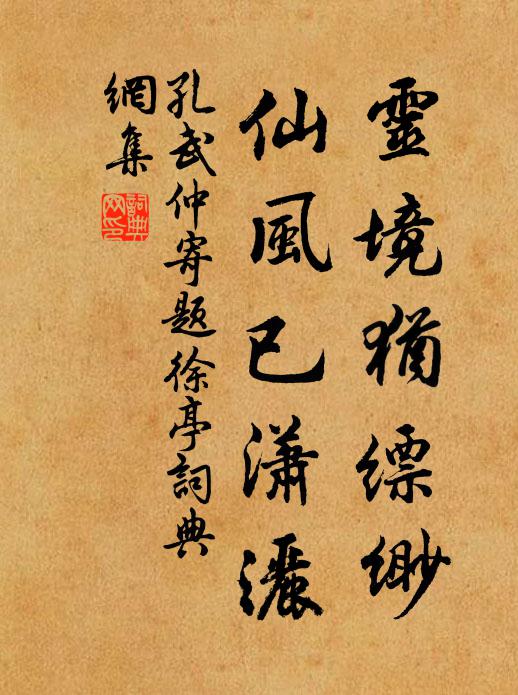 靈境猶縹緲
仙風已瀟灑
孔武仲寄題徐亭詞典
網集
詞典
网印